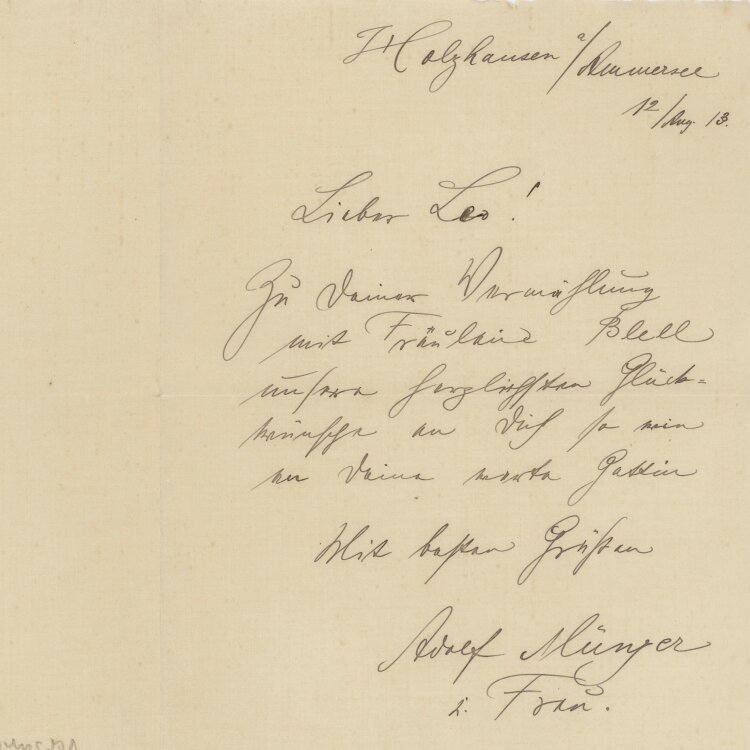 Holzhausen a/Ammersee
12/Aug. 13.
Lieber Leo!
Zu Deiner Vermählung
mit Fräulein Blell
unsere herzlichsten Glück-
wünsche an Dich so wie
an Deine werte Gattin
Mit besten Grüßen
Adolf Münzer
u. Frau.